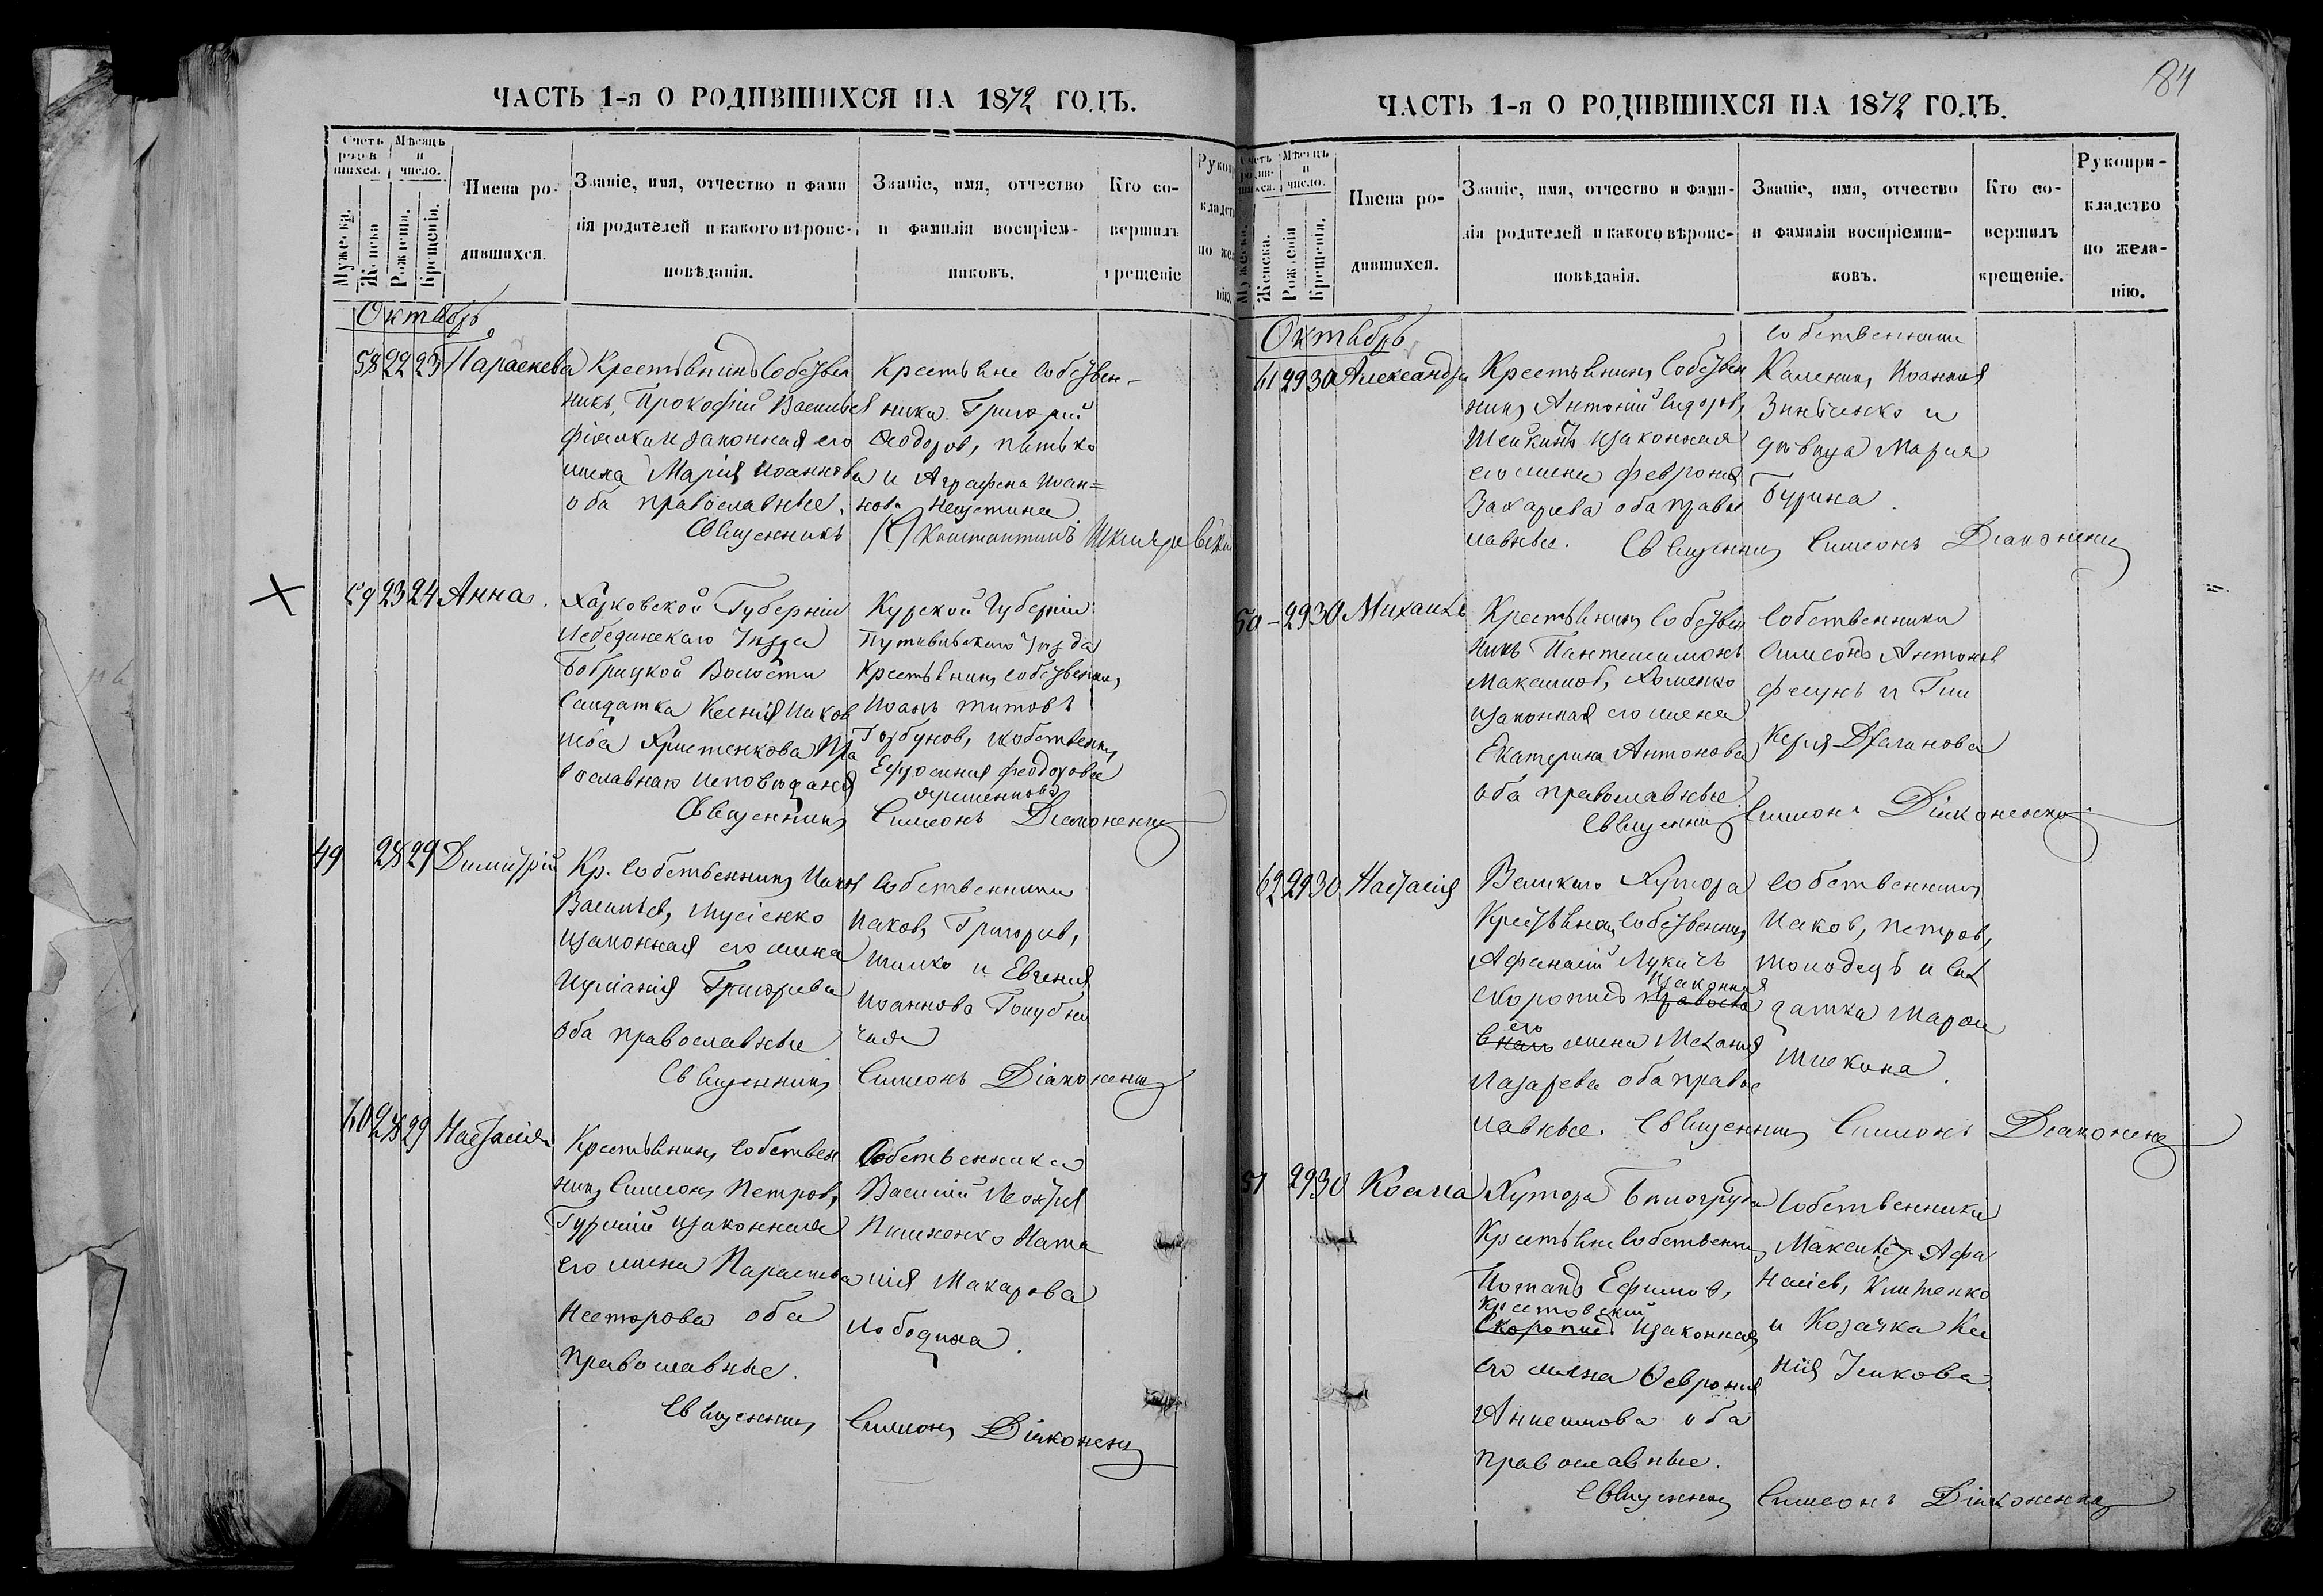 ЧАСТЬ 1-я О РОДИВШИХСЯ НА 1872 ГОДЪ.
Счетъ родившихся.
Мѣсяцъ и число.
Мужеска.
Женска
Рожденія.
Крещенія.
Имена родившихся.
Званіе, имя, отчество и фамилія родителей и какого вѣроисповѣданія.
Званіе, имя, отчество и фамилія воспріемниковъ.
Кто совершилъ крещеніе
Октябрь
58 22 23 Параскева
Крестьянинъ собствен
никъ, Прокофій Васильев
законная его
жена Марія Иоаннова
оба православные.
Крестьяне собствен-
ники Григорій
Ѳеодоров, Пытько
и Аграфена Иоан=
нова
Священникъ Константинъ
59 23 24 Анна.
Харковской Губерніи
Лебединскаго Уѣзда
Бобрицкой Волости
Солдатка Ксенія Иаков
лева Христенкова Пра
вославнаго исповѣданія
Курской Губерніи
Путивльского Уѣзда
Крестьянинъ собственник,
Иоанъ Титовъ
Горбунов, и собственниц
Ефросинія Феодорова
Священникъ Симеонъ Діаконенко
49 28 29 Димитрій
Кр. собственникъ Иаков
Васильев, Мусіенко
изаконная его жена
Иуліанія Григорьева
оба православные
Собственники
Иаков, Григорьев,
Шимко и Евгенія
Иоаннова Голубни
чая
Священникъ Симеонъ Діаконенко
60 28 29 Настасія
Крестьянинъ собствен
никъ Симеонъ Петров,
изаконная
его жена Параскева
Несторова оба
православные.
Собственики
Василій Леонтіев
Пилипенко Ната
лія Макарова
Лободина.
Священникъ Симеонъ Діаконенко
84
ЧАСТЬ 1-я О РОДИВШИХСЯ НА 1872 ГОДЪ.
Мѣсяцъ и число.
Женска.
Рожденія
Крещенія.
Имена родившихся.
Званіе, имя, отчество и фамилія родителей и какого вѣроисповѣданія.
Званіе, имя, отчество и фамилія воспріемниковъ.
Кто совершилъ крещеніе.
Рукоприкладство по желанію.
Октябрь
61 29 30 Александра
Крестьянинъ собствен
никъ Антоній Сидоров,
Шейкинъ изаконная
его жена Феврония
Захарова оба правос
лавные.
собственники
Каленик, Иоаннов
Зинченко и
дѣвица Мария
Бурина.
Священникъ Симеонъ Діаконенко
50 - 29 30 Михаилъ
Крестьянинъ собствен
никъ Пантелеимонъ
Максимов, Хоменко
изаконная его жена
Екатерина Антонова
оба православные
Собственники
Симеонъ Антонов
и Гли
керія
Священникъ Симеонъ Діаконенко
62 29 30 Настасія
Великаго Хутора
Крестьянинъ собственник
Афанасій Лукичъ
Скоропись изаконная
его жена Меланія
Лазарева оба правос
лавные.
собственникъ
Иаков, Петров,
Молодецъ и сол
датка Марфа
Шиекина.
Священникъ Симеонъ Діаконенко
51 29 30 Косма
Хутора
Крестьянинъ собственник
Потапъ Ефимов,
Крестовский
Скоропись изаконная
его жена Ѳеврония
Анисимова оба
православные.
Собственники
Максимъ Афа
насіев, Клименко
и Козачка Ксе
нія
Священникъ Симеонъ Діаконенко